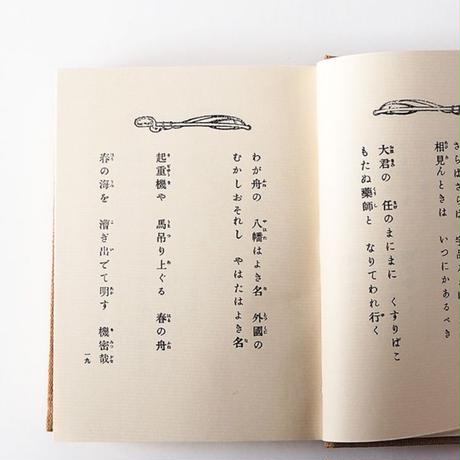 さらばさらば 宇品
相見んときは いつにかあるべき
大君の 任のまにまに くすりばこ
もたぬ藥師と なりてわれ行く
わが舟の 八幡はよき名 外國の
むかしおそれし やはたはよき名
起重機や 馬吊り上ぐる 春の舟
春の海を 漕ぎ出でて明す 機密哉
一九